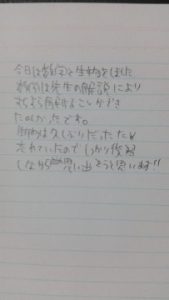 今日は数学と生物をしました
数学は先生の解説により
すらすら解けることができ
たのしかったです。
生物は久しぶりだったため
忘れていたのでしっかり復習
しながら思い出そうと思います!!